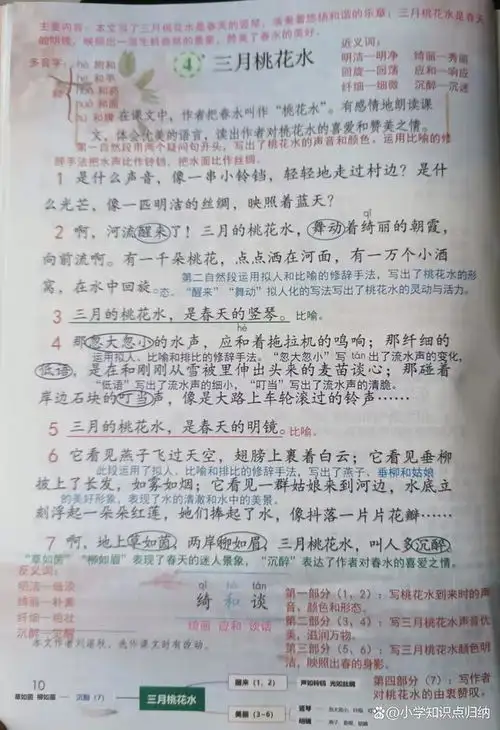 主要内容：本文写了三月桃花水是春天的竖琴，演奏着悠扬和谐的乐章；三月桃花水是春天
的明镜，映照出一派生机盎然的景象，赞美了春水的美好。
多音字：hé 和
近义词：
明洁—明净 绮丽—秀丽
回旋—回荡 应和—响应
纤细—细微 沉醉—沉迷
4 三月桃花水
在课文中，作者把春水叫作“桃花水”。有感情地朗读课
文，体会优美的语言，读出作者对桃花水的喜爱和赞美之情。
第一自然段用两个疑问句开头，写出了桃花水的声音和颜色。运用比喻的修
辞手法把水声比作铃铛，把水面比作丝绸。
1 是什么声音，像一串小铃铛，轻轻地走过村边？是什
么光芒，像一匹明洁的丝绸，映照着蓝天？
qǐ
2 啊，河流醒来了！三月的桃花水，舞动着绮丽的朝霞，
向前流啊。有一千朵桃花，点点洒在河面，有一万个小酒
窝，在水中回旋。
第二自然段运用拟人和比喻的修辞手法，写出了桃花水的形
态。“醒来”“舞动”拟人化的写法写出了桃花水的灵动与活力。
3 三月的桃花水，是春天的竖琴。比喻。
hè
4 那忽大忽小的水声，应和着拖拉机的鸣响；那纤细的
运用拟人、比喻和排比的修辞手法。“忽大忽小”写 tán 出了流水声的变化，
低语，是在和刚刚从雪被里伸出头来的麦苗谈心；那碰着
“低语”写出了流水声的细小，“叮当”写出了流水声的清脆。
岸边石块的叮当声，像是大路上车轮滚过的铃声……
5 三月的桃花水，是春天的明镜。比喻。
6 它看见燕子飞过天空，翅膀上裹着白云；它看见垂柳
此段运用了拟人、比喻和排比的修辞手法，写出了燕子、垂柳和姑娘
披上了长发，如雾如烟；它看见一群姑娘来到河边，水底立
的美好形象，表现了水的清澈和水中的美景。
刻浮起一朵朵红莲，她们捧起了水，像抖落一片片花瓣……
7 啊，地上草如茵，两岸柳如眉，三月桃花水，叫人多沉醉。
“草如茵”“柳如眉”表现了春天的迷人景象，“沉醉”表达了作者对春水的喜爱之情。
反义词：
明洁—
绮丽—朴素
纤细—粗壮
沉醉—
qǐ hè tán
绮 和 谈
绮丽 应和 谈话
第一部分（1，2）：写桃花水到来时的声
音，颜色和形态。
第二部分（3，4）：写三月桃花水声音优
美，滋润万物。
第三部分（5，6）：写三月桃花水颜色明
洁，映照出春的身影。
第四部分（7）：写作者
对桃花水的由衷赞叹。
本文作者刘湛秋，选作课文时有改动。
10
草如茵 柳如眉 — 沉醉（7） 三月桃花水
醒来（1，2） 声如铃铛 光如丝绸
美丽（3-6）
竖琴
明镜
@小学知识点归纳